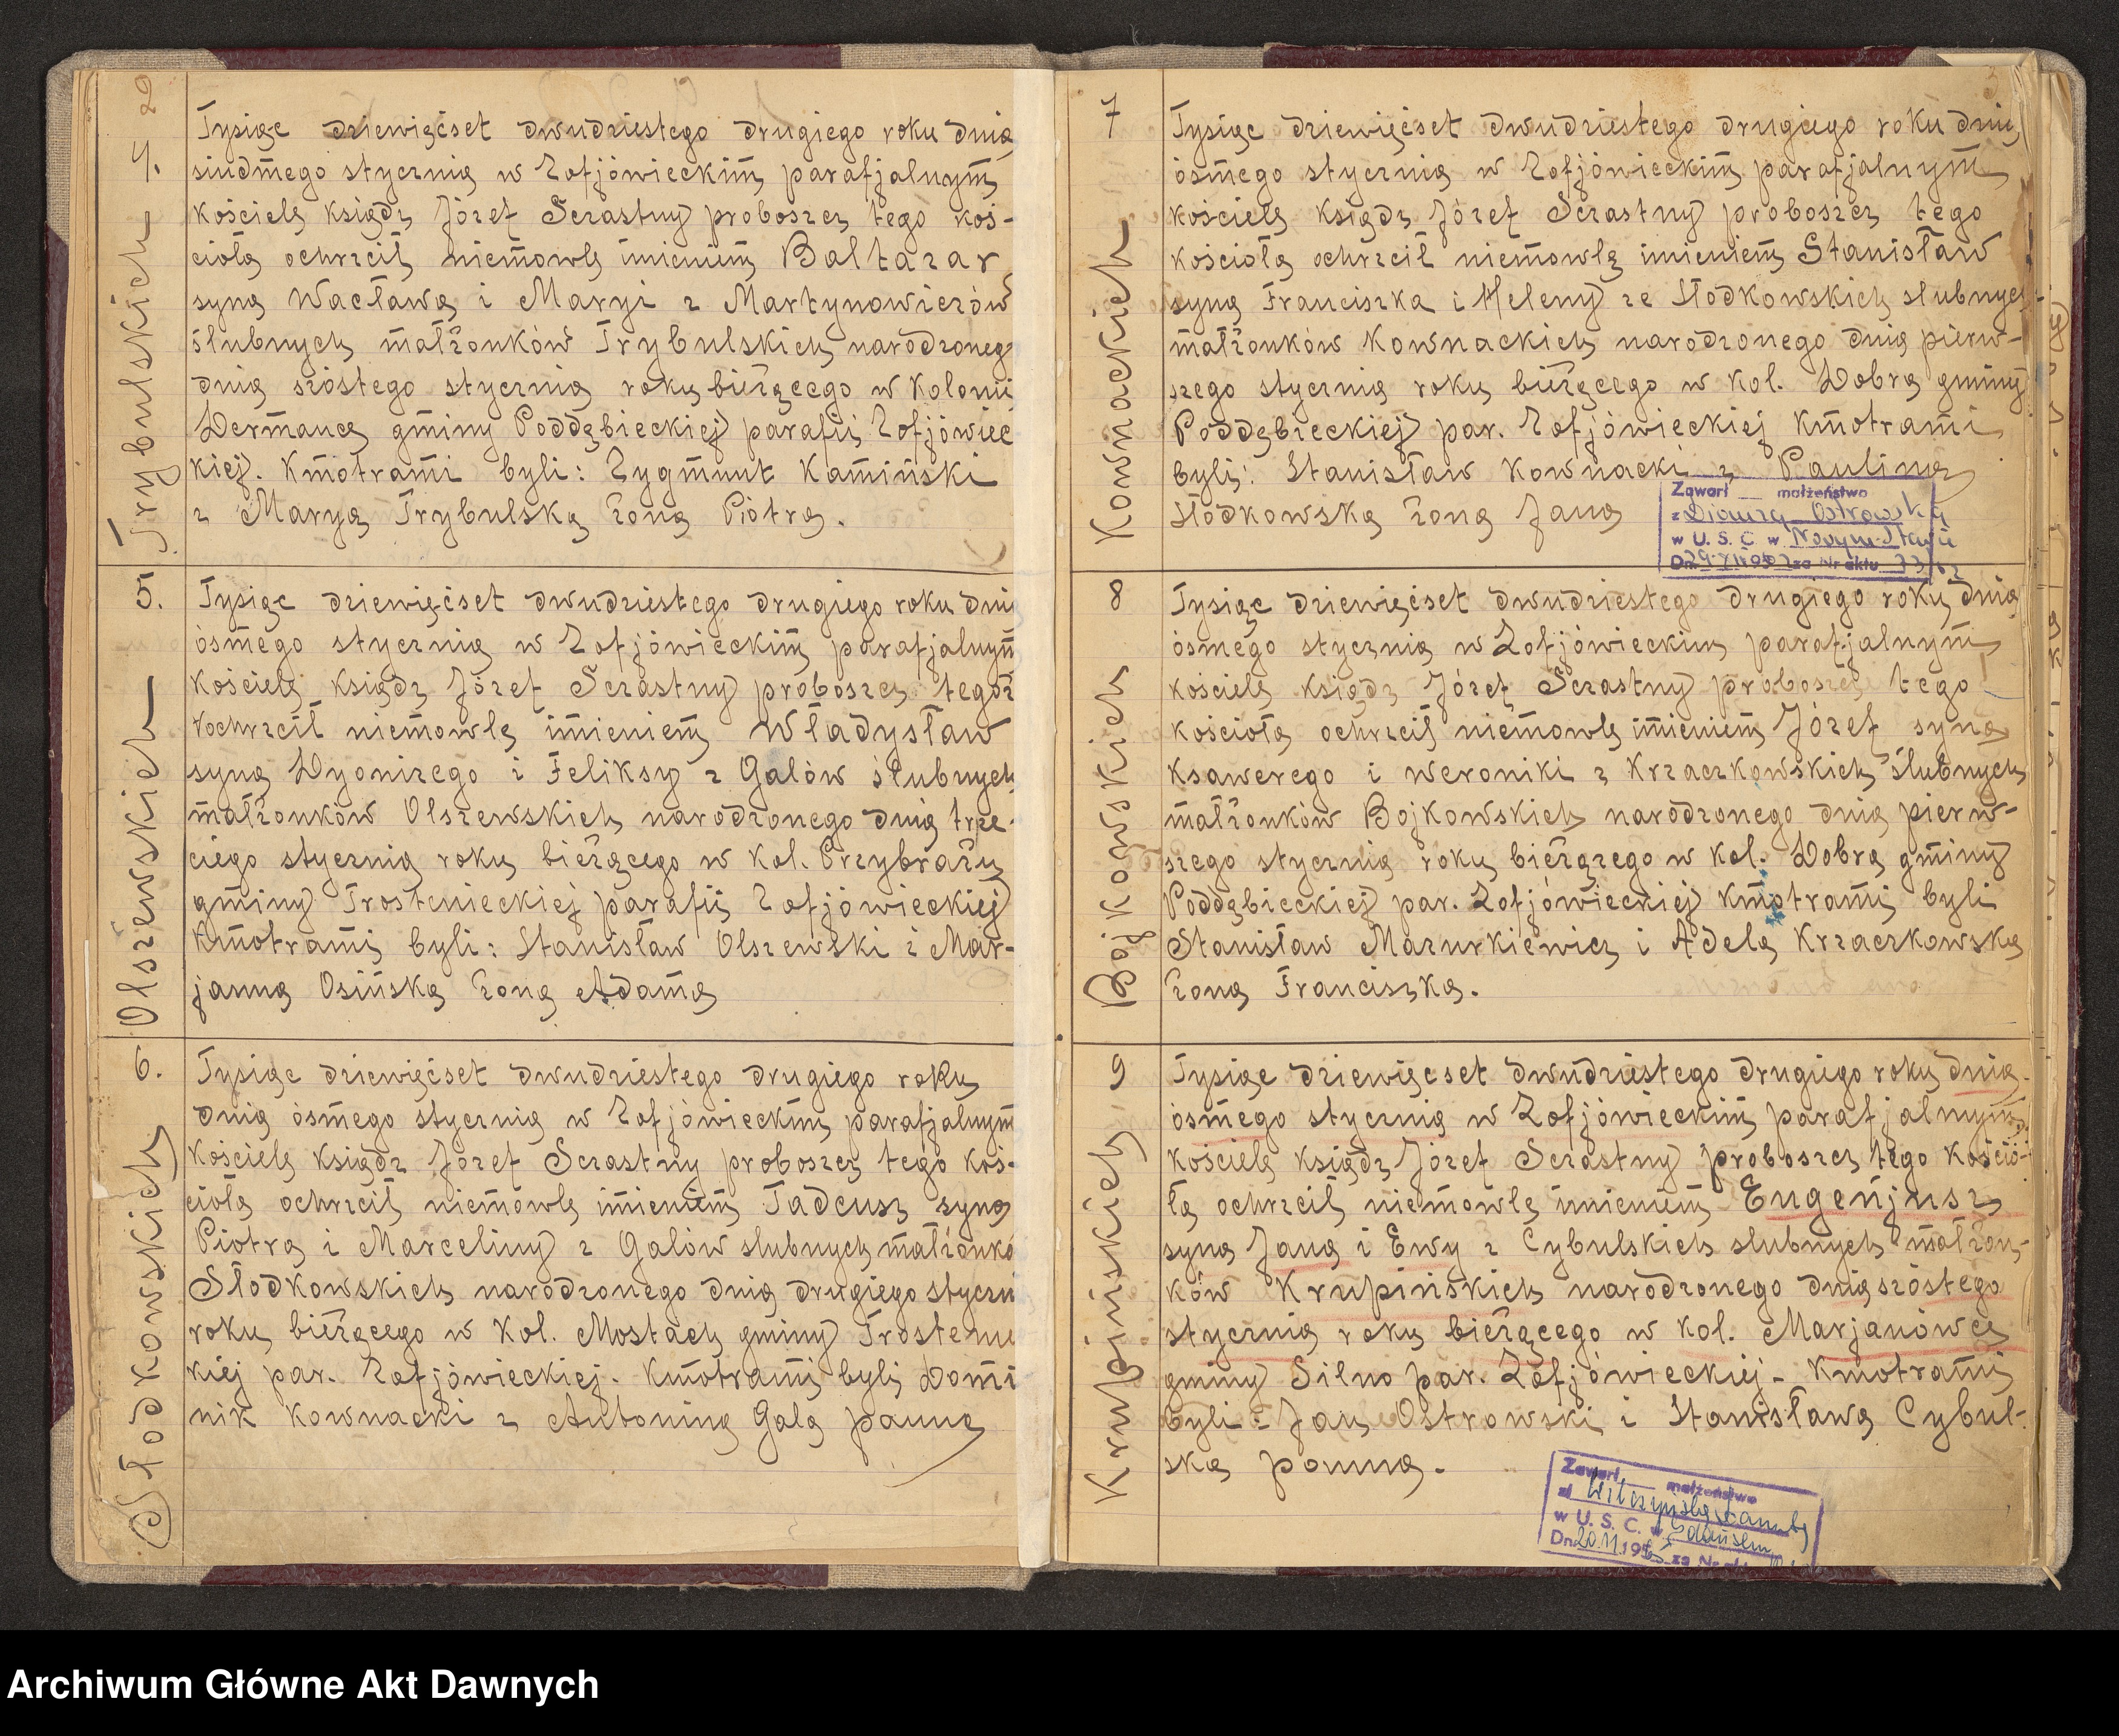 4.
Trybulskich
Tysiąc dziewięćset dwudziestego drugiego roku dnia
siudmego stycznia w Zofjówieckim parafjalnym
kościele ksiądz Józef Szczastny proboszcz tego koś-
cioła ochrzcił niemowlę imieniem Baltazar
syna Wacława i Maryi z Martynowiczów
ślubnych małżonków Trybulskich narodzoneg
dnia szóstego stycznia roku bieżącego w Kolonii
Dermance gminy Poddębieckiej parafii Zofjówiec
kiej. Kmotrami byli: Zygmunt Kamiński
z Maryą Trybulską żoną Piotra.
5.
Olszewskich
Tysiąc dziewięćset dwudziestego drugiego roku dni
ósmego stycznia w Zofjówieckim parafjalnym
kościele ksiądz Józef Szczastny proboszcz tegoż
ochrzcił niemowlę imieniem Władysław
syna Dyonizego i Feliksy z Galów ślubnych
małżonków Olszewskich narodzonego dnia trze-
ciego stycznia roku bieżącego w kol. Przybrażu
gminy Trostenieckiej parafii Zofjówieckiej
Kmotrami byli: Stanisław Olszewski i Mar-
janna Osińska żona Adama
6.
Słodkowskich
Tysiąc dziewięćset dwudziestego drugiego roku
dnia ósmego stycznia w Zofjówieckim parafjalnym
kościele ksiądz Józef Szczastny proboszcz tego koś-
cioła ochrzcił niemowlę imieniem Tadeusz syna
Piotra i Marceliny z Galów slubnych małżonkó
Słodkowskich narodzonego dnia drugiego styczni
roku bieżącego w kol. Mostach gminy Trosteni
kiej par. Zofjówieckiej. Kmotrami byli Domi
nik Kownacki z Antoniną Gala panną
7
Kownackich
Tysiąc dziewięćset dwudziestego drugiego roku dnia
ósmego stycznia w Zofjówieckim parafjalnym
kościele ksiądz Józef Szczastny proboszcz tego
kościoła ochrzcił niemowlę imieniem Stanisław
syna Franciszka i Heleny ze Słodkowskich slubnych
małżonków Kownackich narodzonego dnia pierw-
szego stycznia roku bieżącego w kol. Dobra gminy
Poddębieckiej par. Zofjówieckiej Kmotrami
byli: Stanisław Kownacki z Pauliną
Słodkowską żoną Jana
Zawarł małżeństwo
z Ostrowską
w U. S. C. w Nowym Stawie
Dn. za Nr aktu
8
Bojkowskich
Tysiąc dziewięćset dwudziestego drugiego roku dnia
ósmego stycznia w Zofjówieckim parafjalnym
kościele ksiądz Józef Szczastny proboszcz tego
kościoła ochrzcił niemowlę imieniem Józef syna
Ksawerego i Weroniki z Krzaczkowskich ślubnych
małżonków Bojkowskich narodzonego dnia pierw-
szego stycznia roku bieżązego w kol. Dobra gminy
Poddębieckiej par. Zofjówieckiej Kmotrami byli
Stanisław Mazurkiewicz i Adela Krzaczkowska
żona Franciszka.
9
Krupińskich
Tysiąc dziewięcset dwudziestego drugiego roku dnia
ósmego stycznia w Zofjówieckim parafjalnym
kościele ksiądz Józef Szczastny proboszcz tego kośció-
ła ochrzcił niemowlę imieniem Eugenjusz
syna Jana i Ewy z Cybulskich slubnych małżon-
ków Krupińskich narodzonego dnia szóstego
stycznia roku bieżącego w kol. Marjanówce
gminy Silno par. Zofjówieckiej - Kmotrami
byli: Jan Ostrowski i Stanisława Cybul-
ska panna.
Zawarł małżeństwo
w U. S. C. w Gdańsku
Dn. 20.11.19 za Nr
Archiwum Główne Akt Dawnych